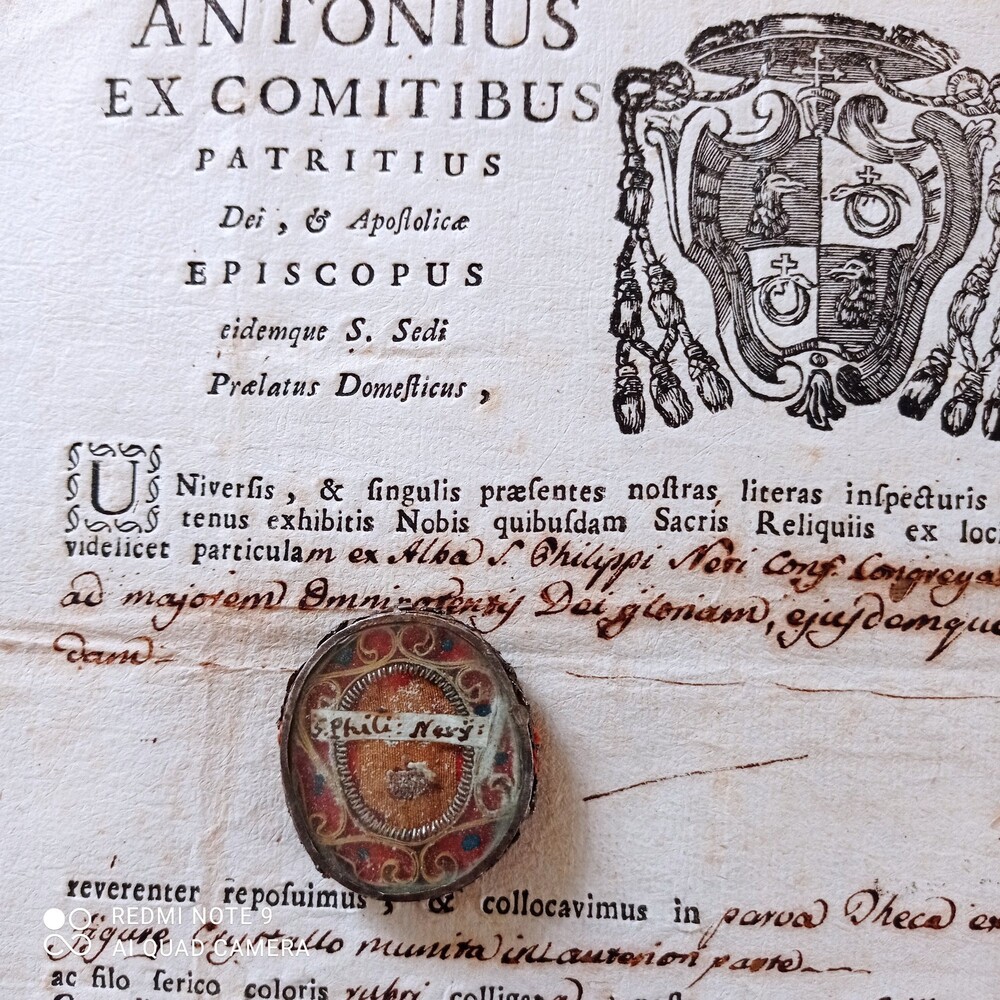 ANTONIUS
EX COMITIBUS
PATRITIUS
Dei, & Apoſtolicæ
EPISCOPUS
eidemque S. Sedi
Prælatus Domeſticus,
UNiverſis, & ſingulis præſentes noſtras literas inſpecturis
tenus exhibitis Nobis quibuſdam Sacris Reliquiis ex loc
videlicet particulam ex Alba S. Philippi Neri Conf. Congrega
ad majorem Omnipotentis Dei gloriam, ejusdemque
dam
S. Phili: Nerij:
reverenter repoſuimus, & collocavimus in parva Theca
figure Crystallo munita in anteriori parte
ac filo ſerico coloris rubri
REDMI NOTE 9
AI QUAD CAMERA